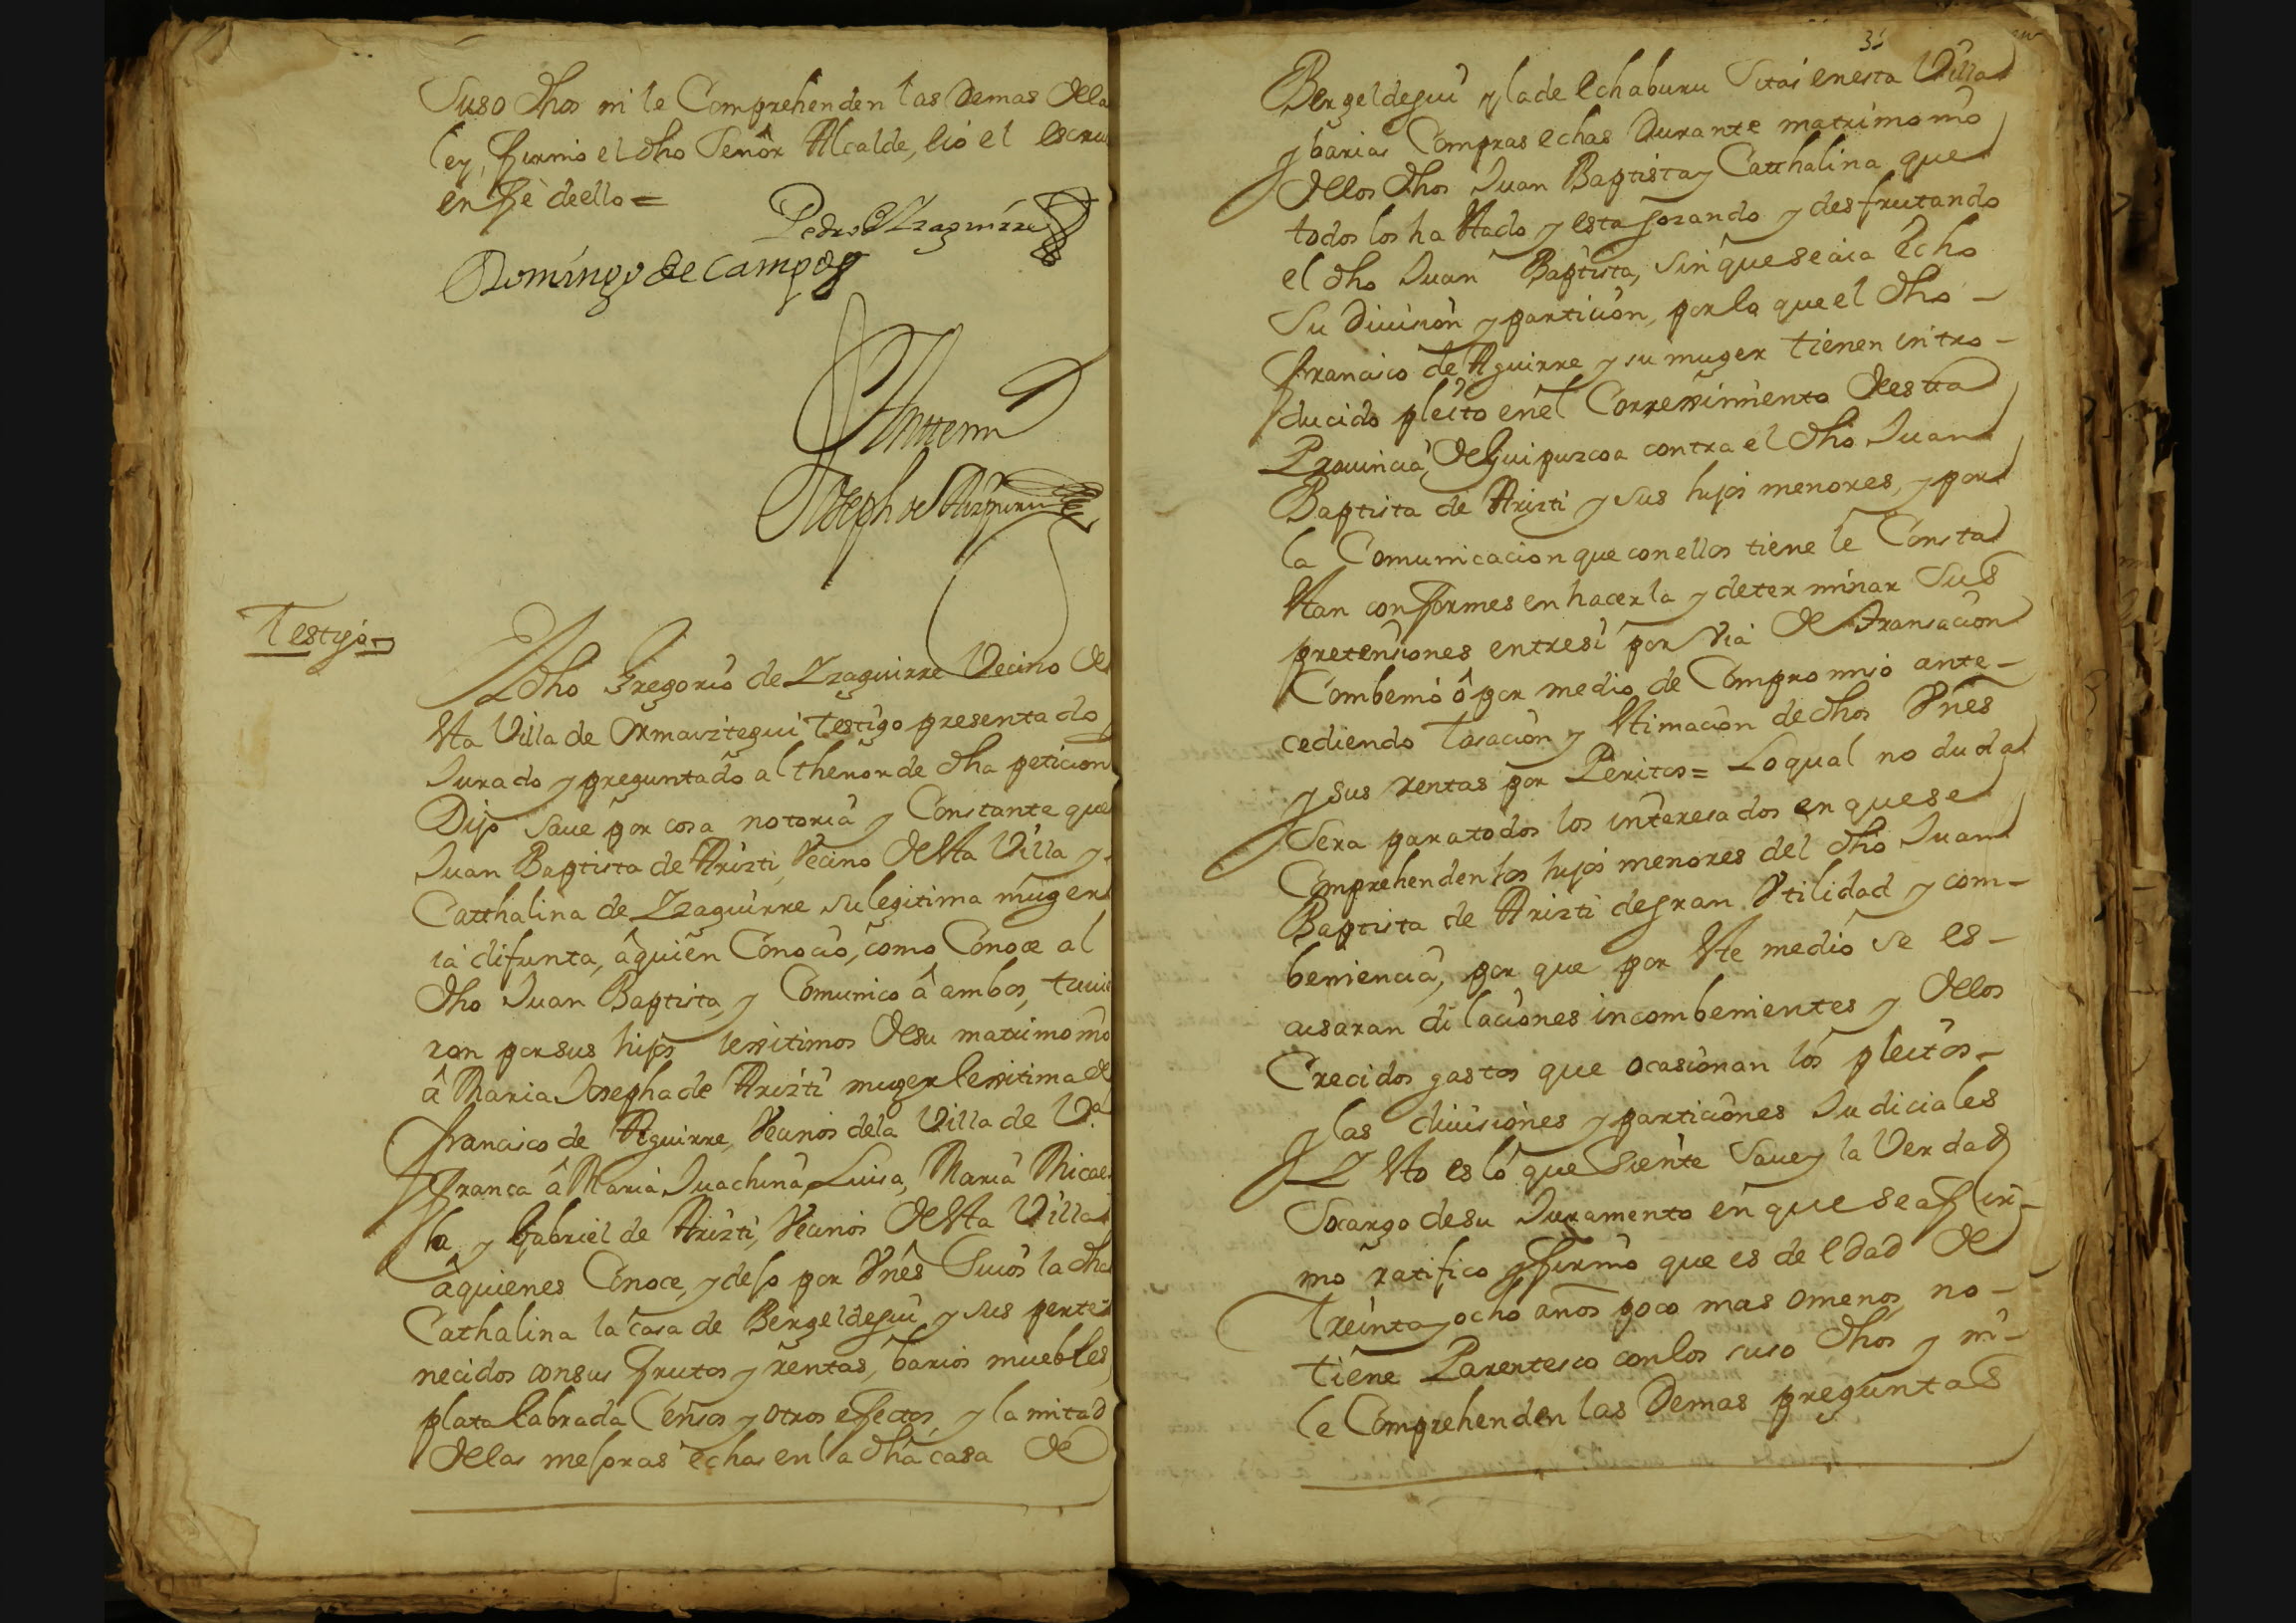 Suso dhos ni le Comprehenden las Demas dela
ley, firmo el dho Señor Alcalde, eió el escriu
en fé deello =
Pedro Yzaguirre
Domingo de Campos
Antemi
Joseph de Aizpuru
Testigo
El dho Gregorio de Yzaguirre Vecino de
sta Villa de Ormaiztegui testigo presentado
Jurado y preguntado al thenor de dha peticion
Dijo saue por cosa notoria y Constante que
Juan Baptista de Arizti, Vecino desta Villa y
Catthalina de Yzaguirre su legitima muger
ia difunta, â quien Conocio, como Conoce al
dho Juan Baptista, y Comunico â ambos, tuuie
ron por sus hijos lexitimos de su matrimonio
â Maria Josepha de Arizti muger lexitima de
francisco de Aguirre, Vecinos dela Villa de Va
franca â Maria Juachina Luisa, Maria Micae
la y Gabriel de Arizti, Vecinos desta Villa
â quienes Conoce, y dejo por Vnes Suios la dha
Cathalina la casa de Bergeldegui y sus perte
necidos con sus frutos y rentas, barios muebles
plata labrada Censos y otros efectos y la mitad
delas mejoras echas en la dha casa de
35
Bergeldegui y la de Echaburu Sitas en esta Villa
y barias Compras echas Durante matrimonio
dellos dhos Juan Baptista y Catthalina que
todos los ha stado y esta gozando y desfrutando
el dho Juan Baptista, sin que se aia echo
Su Diuision y particion, por lo que el dho
francisco de Aguirre y su muger tienen intro-
ducido pleito en el Correximiento deesta
Prouincia de Guipuzcoa contra el dho Juan
Baptista de Arizti y sus hijos menores, y por
la Comunicacion que con ellos tiene le Consta
stan conformes en hacerla y determinar Sus
pretensiones entre si por via de transacion
Combenio ô por medio de Compromiso ante-
cediendo tasacion y stimacion de dhos Vnes
y sus rentas por Peritos = Lo qual no duda
Sera para todos los interesados en que se
Comprehenden los hijos menores del dho Juan
Baptista de Arizti de gran Vtilidad y com-
beniencia, por que por ste medio se es-
cusaran dilaciones incombenientes y dellos
Crecidos gastos que ocasionan los pleitos
y las diuisiones y particiones Judiciales
Y sto es lo que Siente Saue y la Verdad
Socargo de su Juramento en que se afir-
mo ratifico y firmo que es de edad de
treinta y ocho años poco mas omenos, no
tiene Parentesco con los suso dhos y ni
le Comprehenden las Demas preguntas